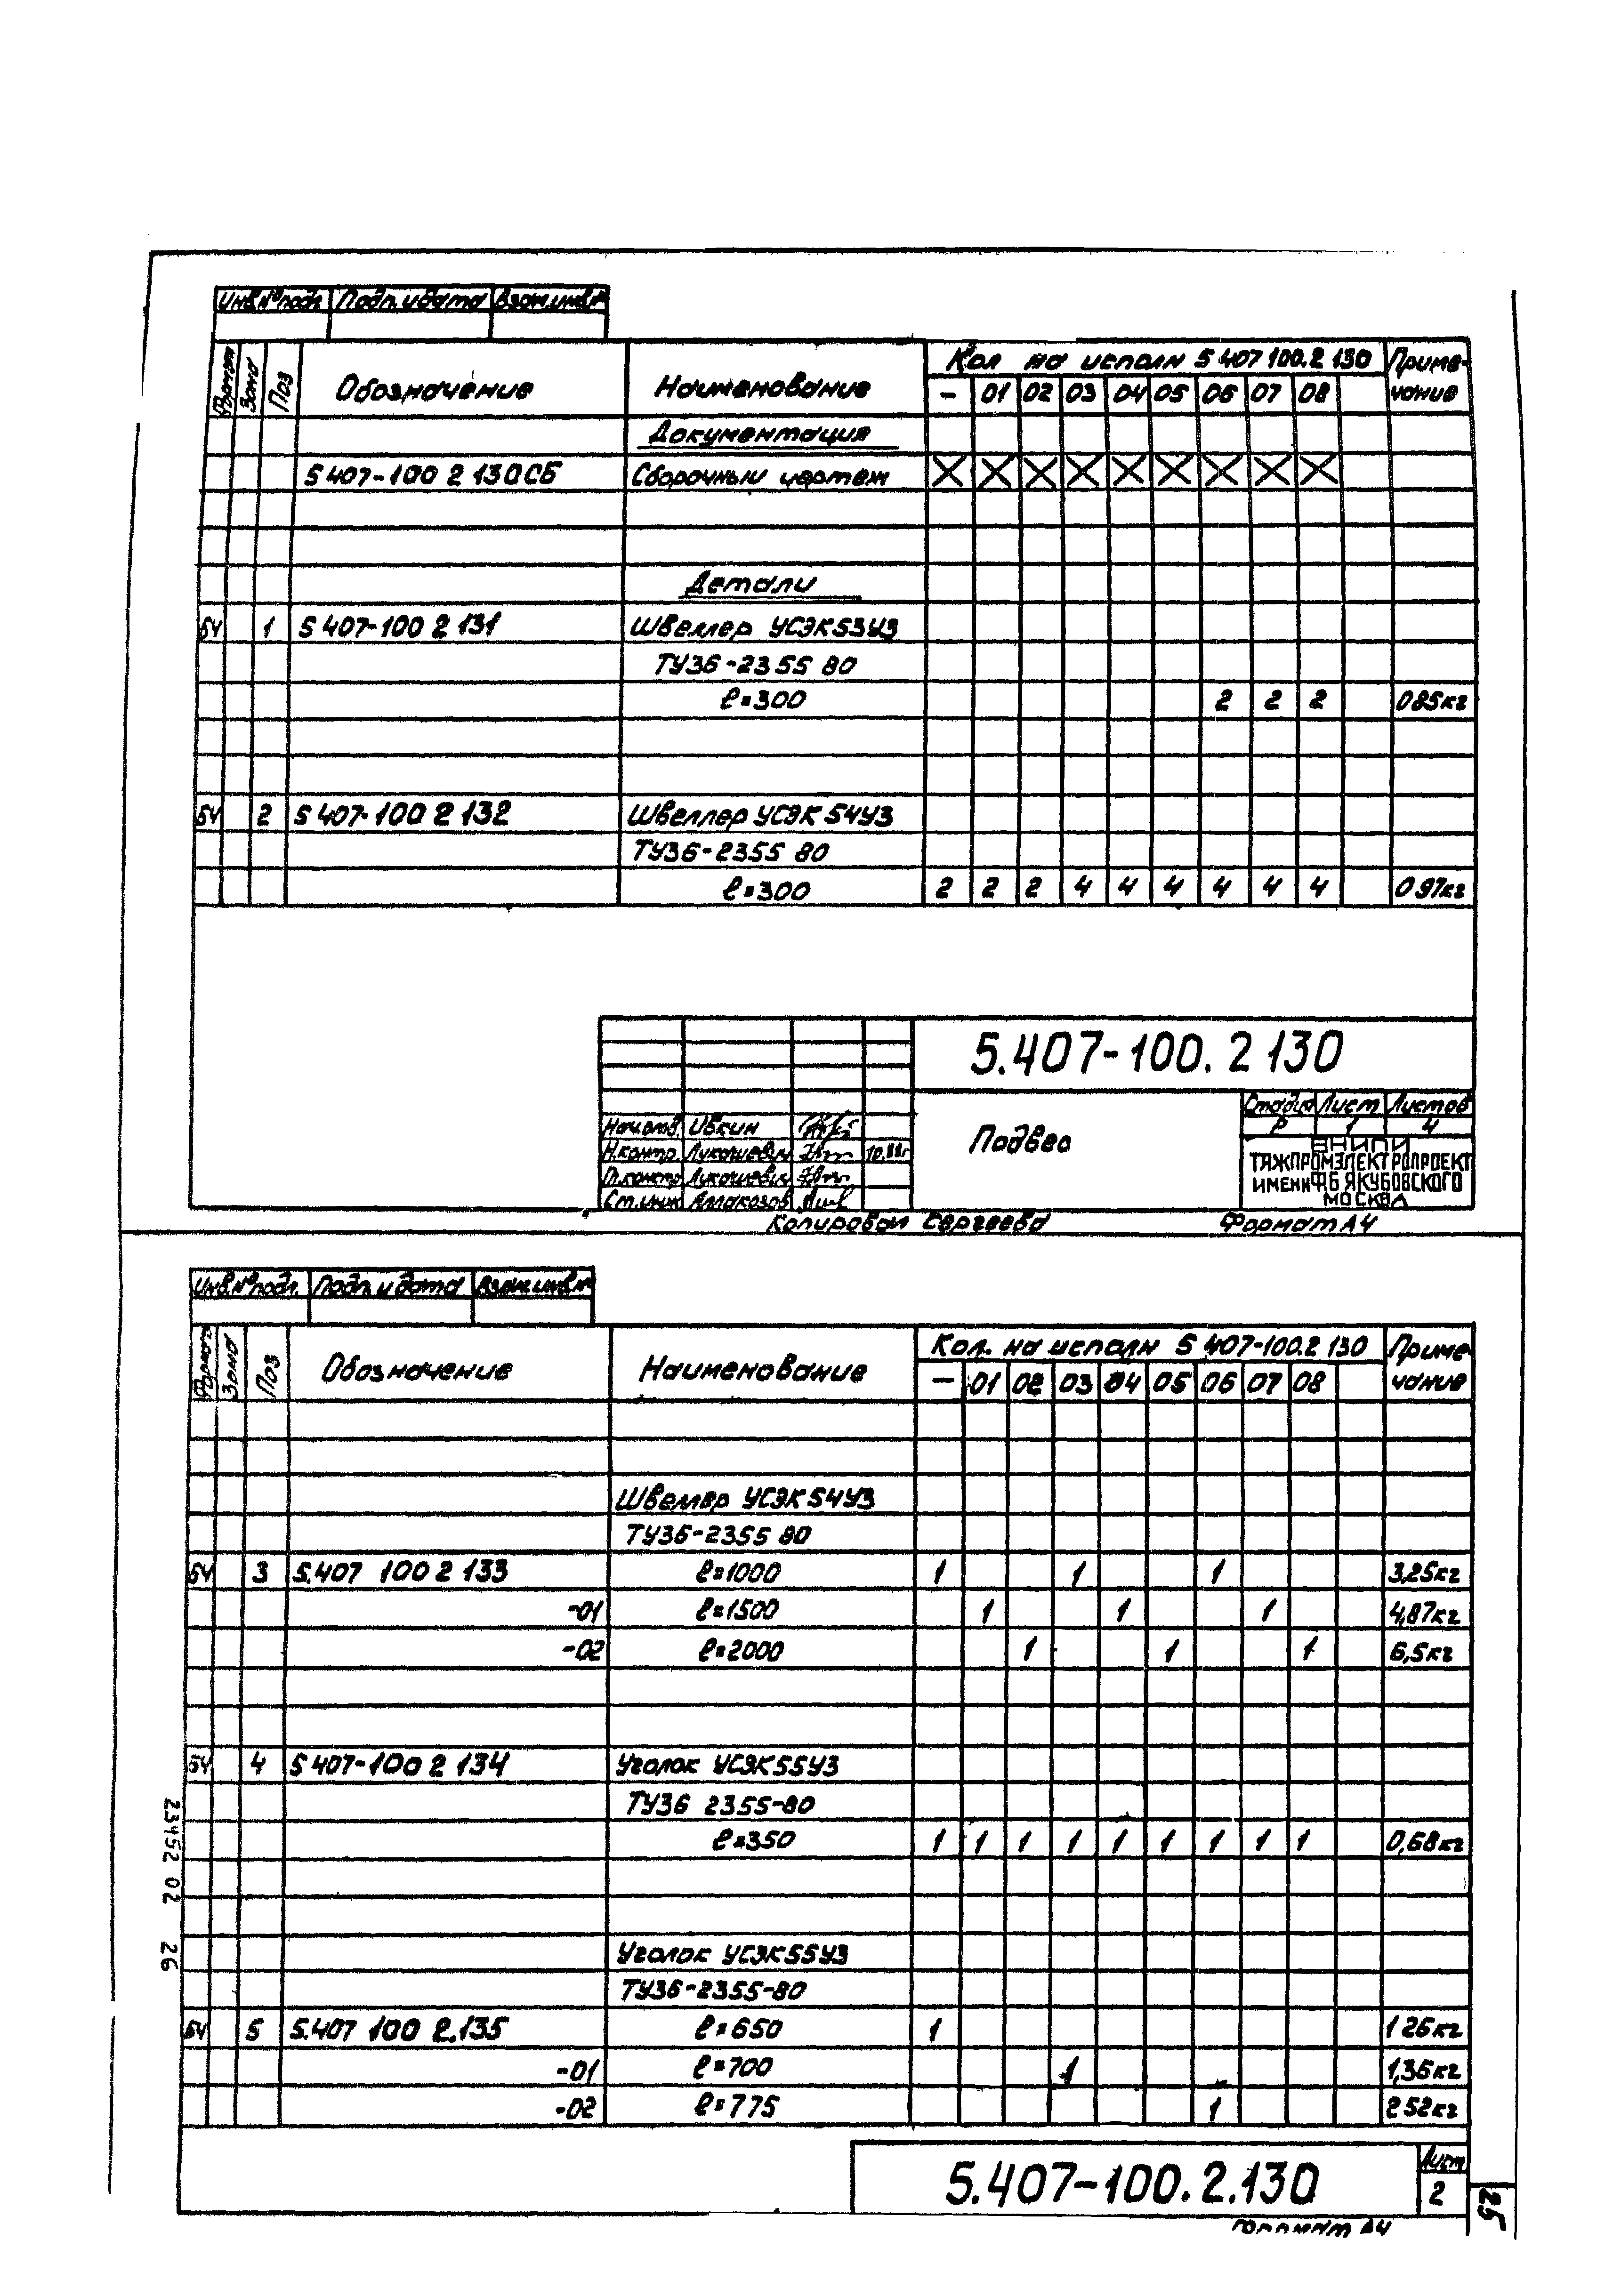 Инв.№подл. Подп. и дата Взам.инв.№
Формат Зона Поз Обозначение Наименование Кол на исполн 5 407 100.2 130 Приме-
чание
– 01 02 03 04 05 06 07 08
Документация
5 407-100 2 130СБ Сборочный чертеж X X X X X X X X X
Детали
БЧ 1 5 407-100 2 131 Швеллер УСЭК53У3
ТУ36-2355 80
ℓ=300 2 2 2 085кг
БЧ 2 5 407-100 2 132 Швеллер УСЭК 54У3
ТУ36-2355 80
ℓ=300 2 2 2 4 4 4 4 4 4 0 97кг
5.407-100. 2 130
Нач.отд. Ивкин
Н.контр. Лукашевич 10.88г
Лукашевич
Ст.инж. Аллакозов
Подвес
Стадия Лист Листов
Р 1 4
ВНИПИ
ТЯЖПРОМЭЛЕКТРОПРОЕКТ
ИМЕНИ Ф.Б ЯКУБОВСКОГО
МОСКВА
Копировал Сергеева Формат А4
Инв.№подл. Подп. и дата Взам.инв.№
Формат Зона Поз Обозначение Наименование Кол. на исполн 5 407-100.2 130 Приме
чание
– 01 02 03 04 05 06 07 08
Швеллер УСЭК 54У3
ТУ36-2355 80
БЧ 3 5.407 100 2 133 ℓ=1000 1 1 1 3,25кг
-01 ℓ=1500 1 1 1 4,87кг
-02 ℓ=2000 1 1 1 6,5кг
БЧ 4 5 407-100 2 134 Уголок УСЭК55У3
ТУ36 2355-80
ℓ=350 1 1 1 1 1 1 1 1 1 0,68кг
Уголок УСЭК55У3
ТУ36-2355-80
БЧ 5 5.407 100 2.135 ℓ=650 1 1 26кг
-01 ℓ=700 1 1,36кг
-02 ℓ=775 1 2 52кг
23452 02 26
5.407-100.2.130
Лист
2
Формат А4
25